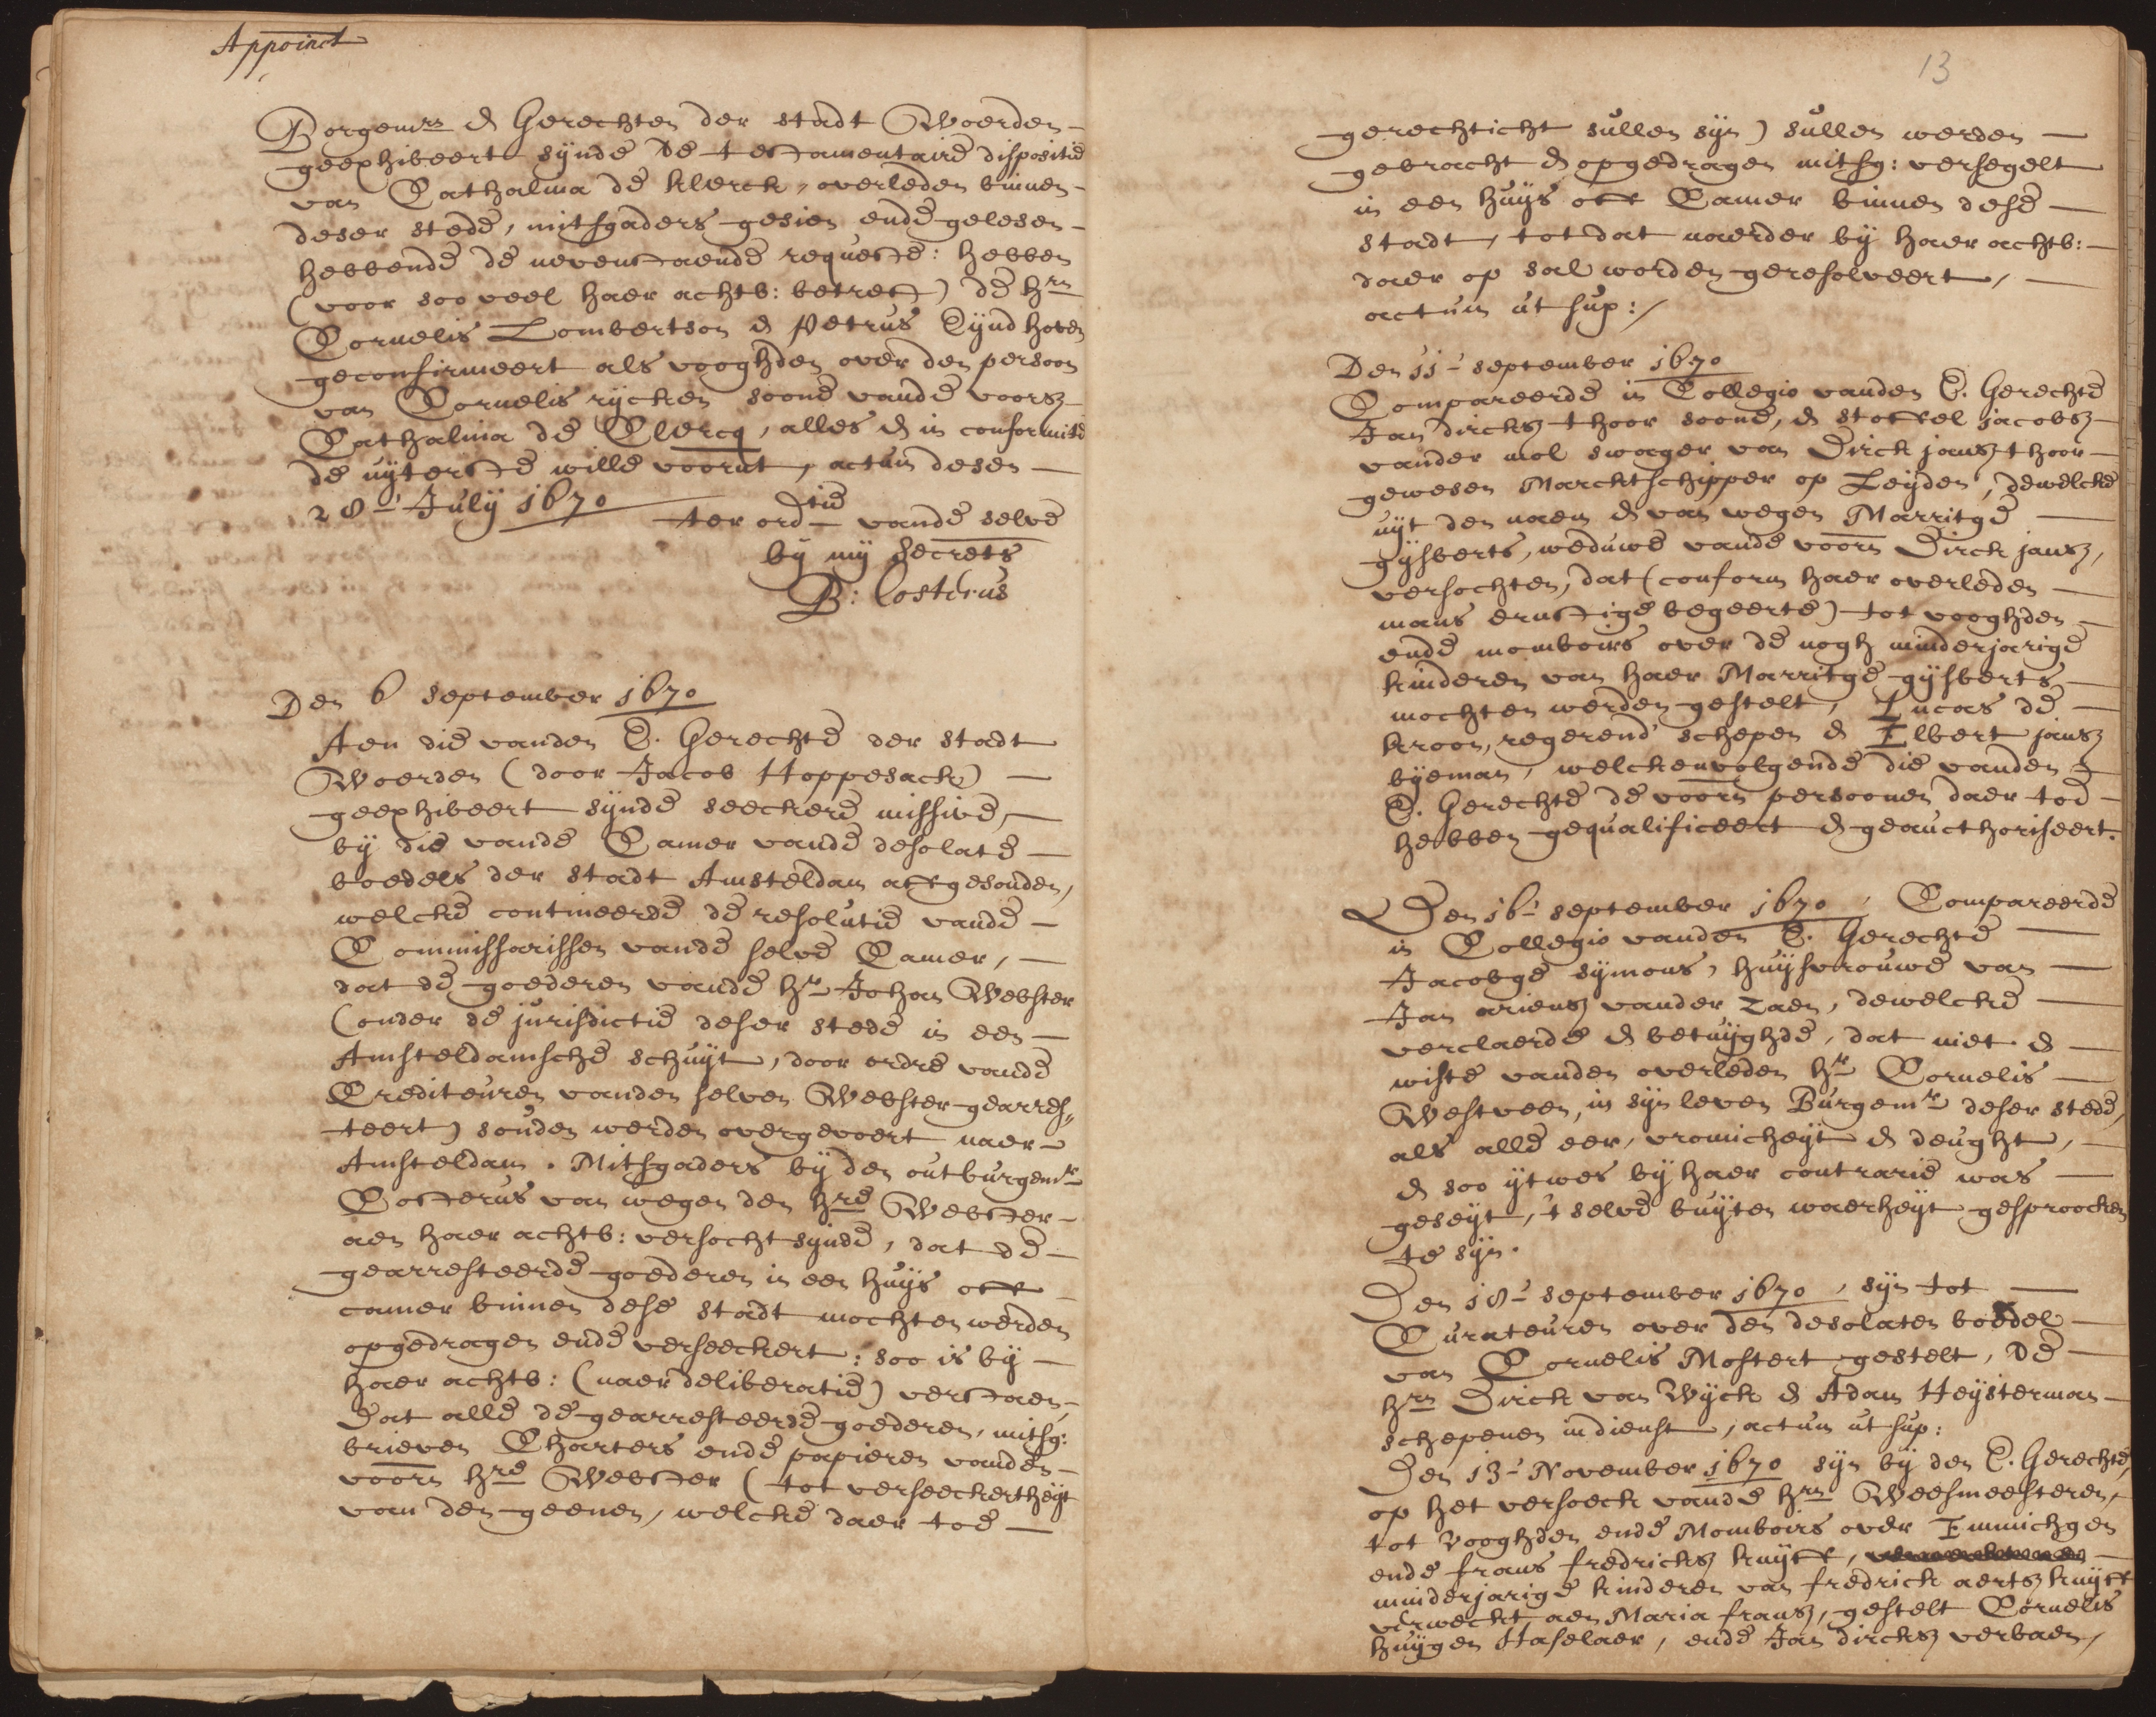 Appoinct
Borgemrs & Gerechten der stadt Woerden
geexhibeert synde de testamentaire dispositie
van Cathalina de klerck, overleden binnen
deser stede, mitsgaders gesien ende gelesen
hebbende de nevenstaende requeste: hebben
(voor soo veel haer achtb: betreft) de hrn
Cornelis Lombertson & Petrus Eyndhoven
geconfirmeert als vooghden over den persoon
van Cornelis rycken soone vande voorsz
Cathalina de Clercq, alles & in conformite
de uyterste wille voornt, actum desen
28 July 1670
ter ordtie vande selve
by my Secrets
B: Costerus
Den 6 september 1670
Aen die vanden E. Gerechte der stadt
Woerden (door Jacob Hoppesack)
geexhibeert synde seeckere missive,
by die vande Camer vande desolate
boedels der stadt Amsteldam affgesonden,
welcke contineerde de resolutie vande
Commissarissen vande selve Camer,
dat de goederen vande hr Johan Webster
(onder de jurisdictie deser stede in een
Amsteldamsche schuyt, door ordre vande
Crediteuren vanden selven Webster gearres,,
teert) souden werden overgevoert naer
Amsteldam. Mitsgaders by den outburgemr
Costerus van wegen den hre Webster
aen haer achtb: versocht synde, dat de
gearresteerde goederen in een huys off
camer binnen dese stadt mochten werden
opgedragen ende verseeckert: soo is by
haer achtb: (naer deliberatie) verstaen,
dat alle de gearresteerde goederen, mitsg:
brieven Charters ende papieren vanden
voorn hre Webster (tot verseeckertheyt
van den geenen, welcke daer toe
13
gerechticht sullen syn) sullen werden
gebracht & opgedragen mitsg: versegelt
in een huys off Camer binnen dese
stadt, tot dat naerder by haer achtb:
daer op sal worden geresolveert,
actum ut sup:/
Den 11 september 1670
Compareerde in Collegio vanden E. Gerechte
Jan dircksz thoor soone, & stoffel jacobsz
vander mol swager van Dirck jansz thoor
gewesen Marcktschipper op Leyden, dewelcke
uyt den naem & van wegen Marritge
gysberts, weduwe vande voorn Dirck jansz,
versochten, dat (conform haer overleden
mans ernstige begeerte) tot vooghden
ende momboirs over de nogh minderjarige
kinderen van haer Marritge gysberts
mochten werden gestelt, Lucas de
kroon, regerend' schepen & Elbert jansz
byeman, welckenvolgende die vanden
E. Gerechte de voorn persoonen daer toe
hebben gequalificeert & geaucthoriseert.
Den 16 september 1670, Compareerde
in Collegio vanden E. Gerechte
Jacobge symons, huysvrouwe van
Jan ariensz vander zaen, dewelcke
verclaerde & betuyghde, dat niet &
wiste vanden overleden hr Cornelis
Westveen, in syn leven Burgemr deser stede,
als alle eer, vromicheyt & deught,
& soo ytwes by haer contrarie was
geseyt, 't selve buyten waerheyt gesproocken
te syn.
Den 18 september 1670, syn tot
Curateuren over den desolaten boedel
van Cornelis Mostert gestelt, de
hrn Dirck van Wyck & Adam Heysterman
schepenen indienst, actum ut sup:
Den 13 November 1670 syn by den E. Gerechte,
op het versoeck vande hrn Weesmeesteren,
tot vooghden ende Momboirs over Emmichgen
ende frans fredricksz kuyff,
minderjarige kinderen van fredrick aertsz kuyff
verweckt aen Maria fransz, gestelt Cornelis
huygen Haselaer, ende Jan dircksz verbaen,